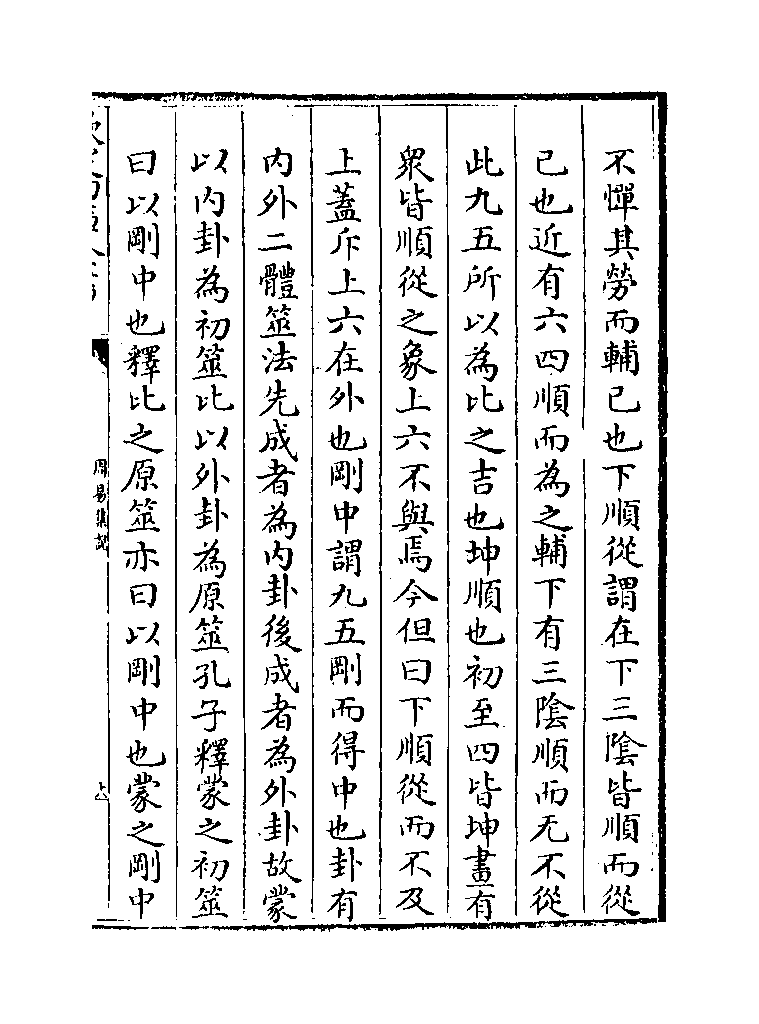 不憚其勞而輔己也下順從謂在下三陰皆順而從
己也近有六四順而為之輔下有三陰順而无不從
此九五所以為比之吉也坤順也初至四皆坤畫有
衆皆順從之象上六不與焉今但曰下順從而不及
上蓋斥上六在外也剛中謂九五剛而得中也卦有
内外二體筮法先成者為内卦後成者為外卦故蒙
以内卦為初筮比以外卦為原筮孔子釋蒙之初筮
曰以剛中也釋比之原筮亦曰以剛中也蒙之剛中
周易集説